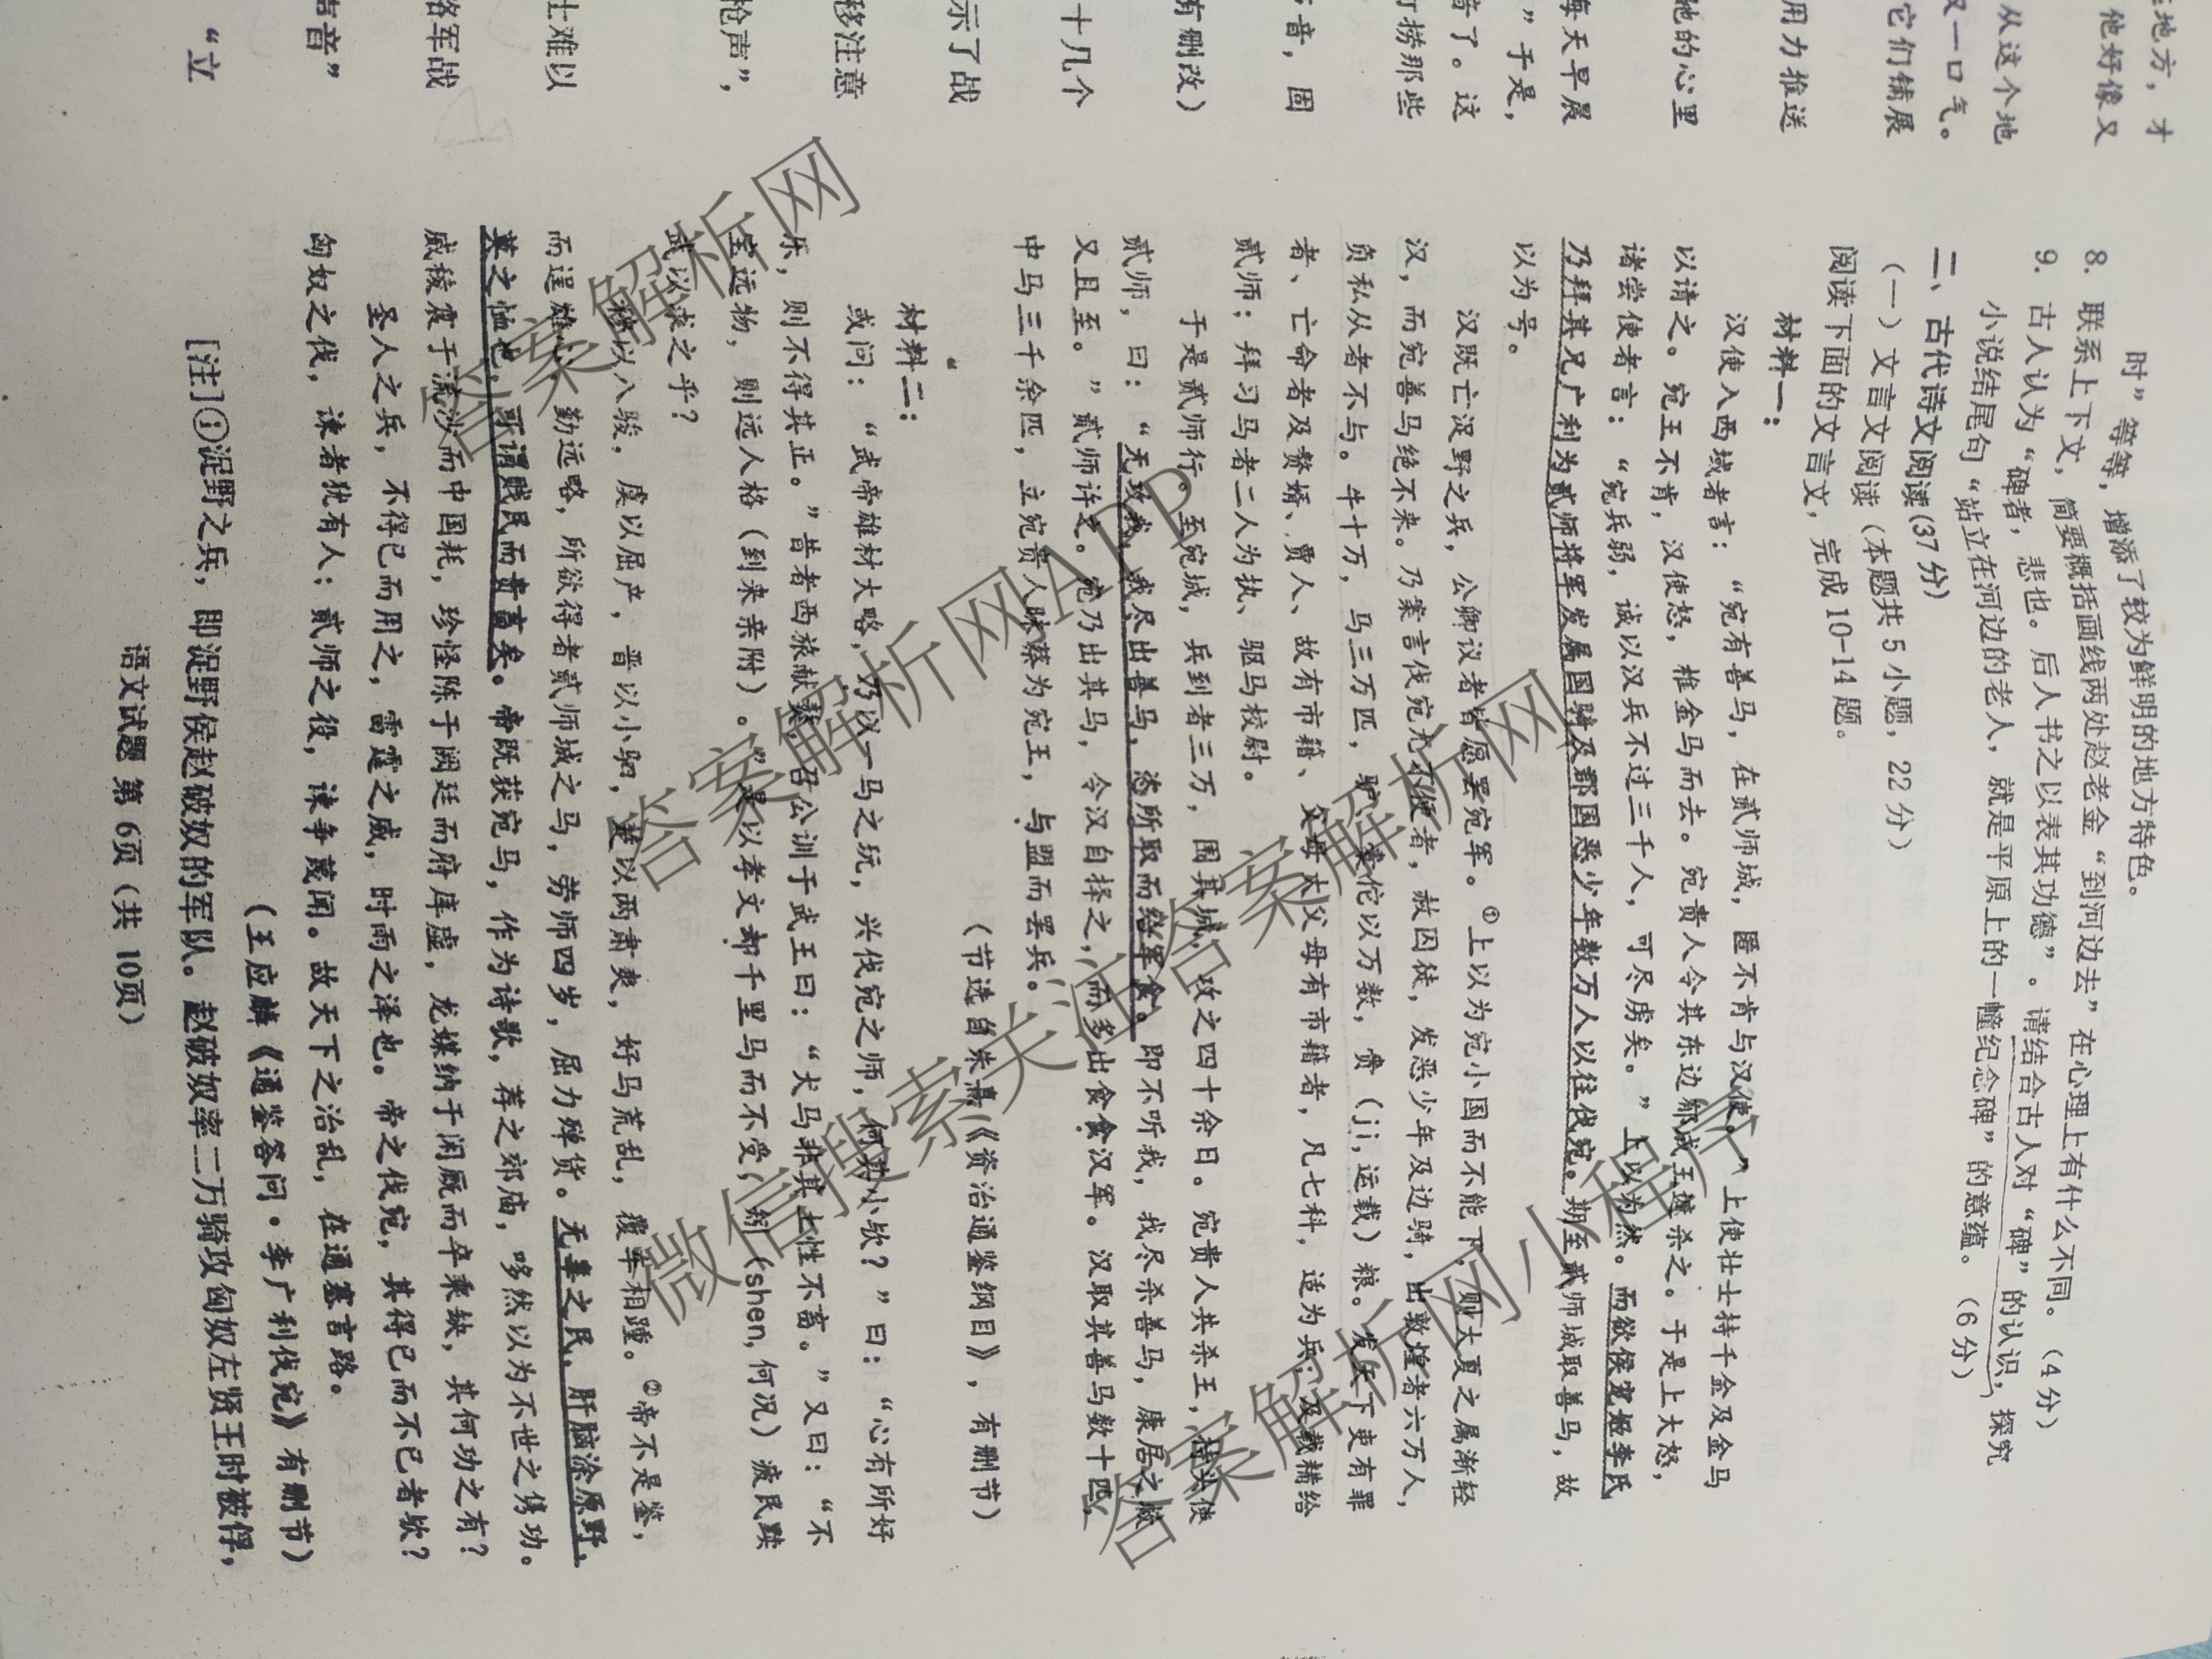 时”等等，增添了较为鲜明的地方特色。
8. 联系上下文，简要概括画线两处赵老金“到河边去”在心理上有什么不同。（4分）
9. 古人认为“碑者，悲也。后人书之以表其功德”。请结合古人对“碑”的认识，探究
小说结尾句“站立在河边的老人，就是平原上的一幢纪念碑”的意蕴。（6分）
二、古代诗文阅读(37分)
（一）文言文阅读（本题共5小题，22分）
阅读下面的文言文，完成10-14题。
材料一：
汉使入西域者言：“宛有善马，在贰师城，匿不肯与汉使。”上使壮士持千金及金马
以请之。宛王不肯，汉使怒，椎金马而去。宛贵人令其东边郁成王遮杀之。于是上大怒，
诸尝使者言：“宛兵弱，诚以汉兵不过三千人，可尽虏矣。”上以为然。而欲侯宠姬李氏
乃拜其兄广利为贰师将军发属国骑及郡国恶少年数万人以往伐宛。期至贰师城取善马，故
以为号。
汉既亡浞野之兵，公卿议者皆愿罢宛军。①上以为宛小国而不能下，则大夏之属渐轻
汉，而宛善马绝不来。乃案言伐宛尤不便者，赦囚徒，发恶少年及边骑，出敦煌者六万人，
负私从者不与。牛十万，马三万匹，驴橐佗以万数，赍（jī，运载）粮。发天下吏有罪
者、亡命者及赘婿、贾人、故有市籍、父母大父母有市籍者，凡七科，适为兵；及载糒给
贰师；拜习马者二人为执、驱马校尉。
于是贰师行。至宛城，兵到者三万，围其城，攻之四十余日。宛贵人共杀王，持头使
贰师，曰：“无攻我，我尽出善马，恣所取而给军食。即不听我，我尽杀善马，康居之救
又且至。”贰师许之。宛乃出其马，令汉自择之，而多出食食汉军。汉取其善马数十匹，
中马三千余匹，立宛贵人昧蔡为宛王，与盟而罢兵。
（节选自朱熹《资治通鉴纲目》，有删节）
材料二：
或问：“武帝雄材大略，乃以一马之玩，兴伐宛之师，何其小欤？”曰：“心有所好
乐，则不得其正。”昔者西旅献獒，召公训于武王曰：“犬马非其土性不畜。”又曰：“不
宝远物，则远人格（到来亲附）。”是以孝文却千里马而不受，矧（shen，何况）疲民黩
武以求之乎？
穆以八骏，虞以屈产，晋以小驷，楚以两肃爽，好马荒乱，覆车相踵。②帝不是鉴，
而逞雄心，勤远略，所欲得者贰师城之马，劳师四岁，屈力殚货。无辜之民，肝脑涂原野，
莫之恤也，可谓贱民而贵畜矣。帝既获宛马，作为诗歌，荐之郊庙，哆然以为不世之隽功。
威棱震于流沙而中国耗，珍怪陈于阙廷而府库虚，龙媒纳于闲厩而卒乘缺，其何功之有？
圣人之兵，不得已而用之，雷霆之威，时雨之泽也。帝之伐宛，其得已而不已者欤？
匈奴之伐，谏者犹有人；贰师之役，谏争蔑闻。故天下之治乱，在通塞言路。
（王应麟《通鉴答问·李广利伐宛》有删节）
[注]①浞野之兵，即浞野侯赵破奴的军队。赵破奴率二万骑攻匈奴左贤王时被俘，
语文试题 第6页（共10页）
地方，才
他好像又
从这个地
又一口气。
它们铺展
用力推送
她的心里
每天早晨
”于是，
音了。这
打捞那些
音，固
有删改）
十几个
示了战
移注意
枪声”，
士难以
路军战
声音”
“立
答案解析网
答案解析网APP